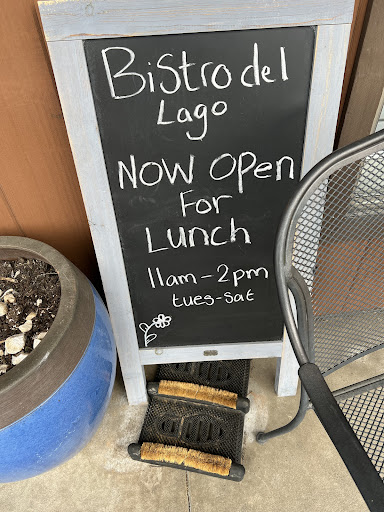 Bistro del
Lago
Now Open
For
Lunch
11am - 2pm
tues-sat